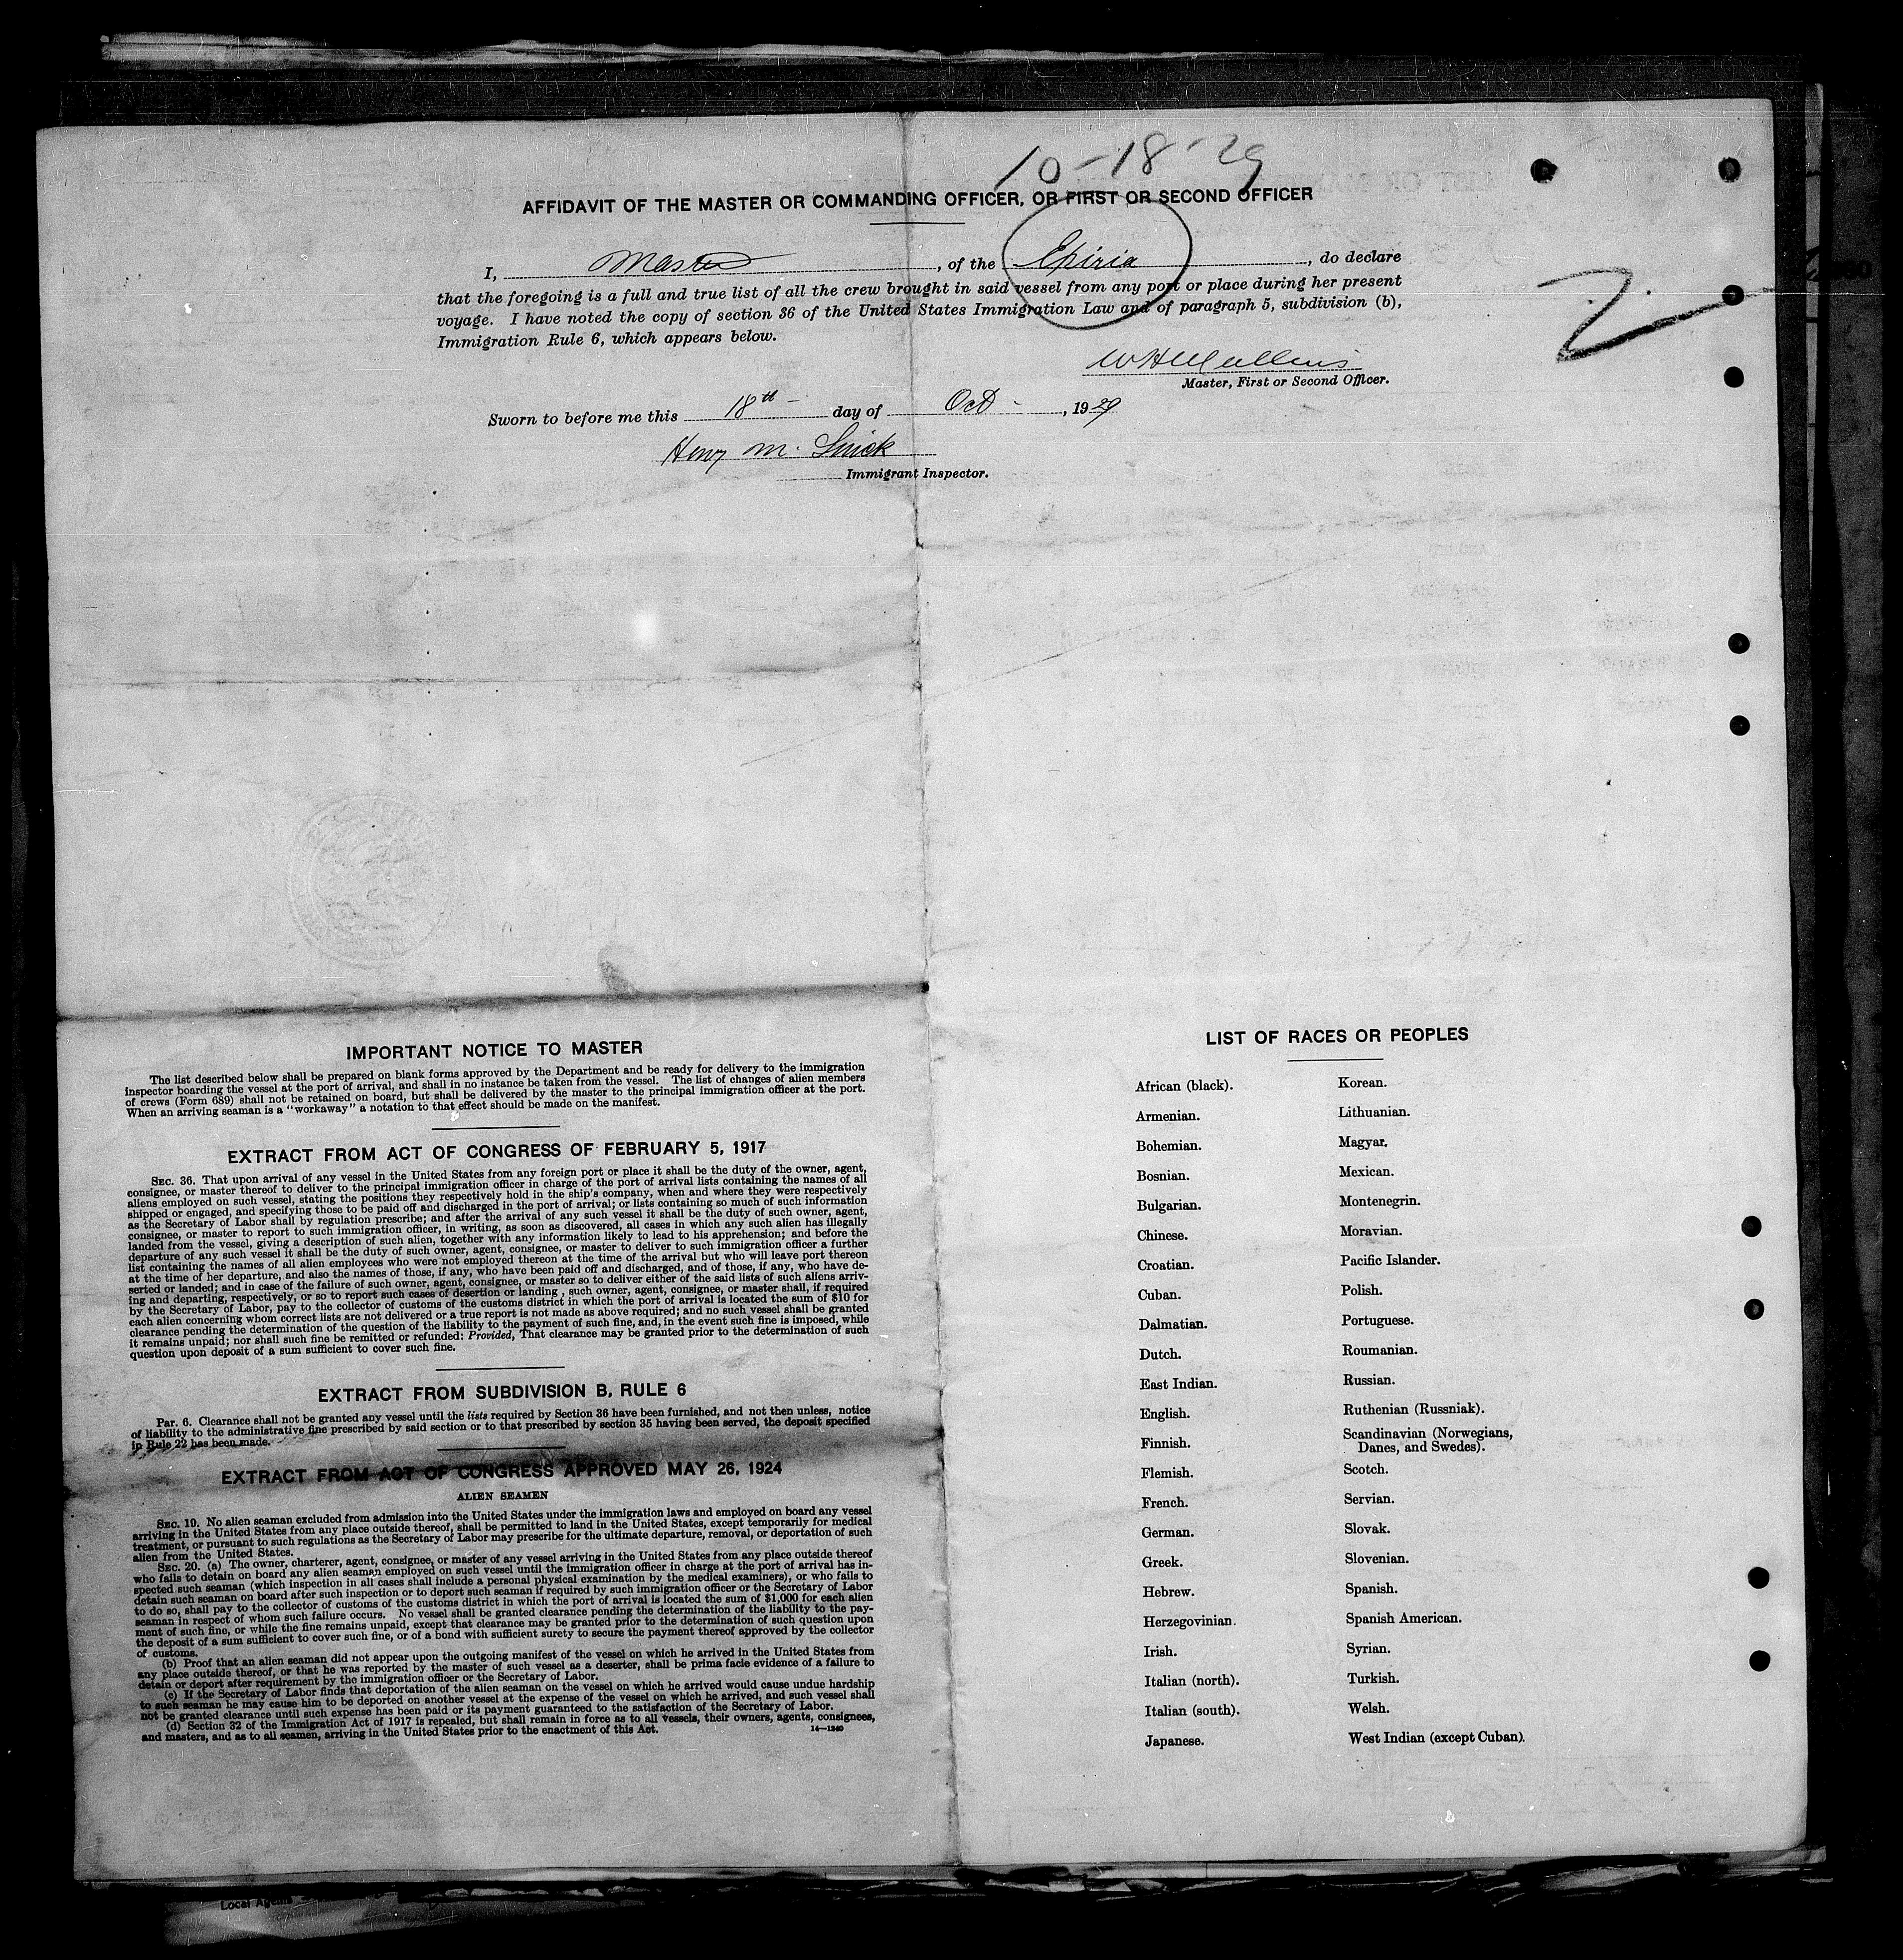 10-18-29
AFFIDAVIT OF THE MASTER OR COMMANDING OFFICER, OR FIRST OR SECOND OFFICER
I, Master, of the Epiria, do declare
that the foregoing is a full and true list of all the crew brought in said vessel from any port or place during her present
voyage. I have noted the copy of section 36 of the United States Immigration Law and of paragraph 5, subdivision (b),
Immigration Rule 6, which appears below.
2
Master, First or Second Officer.
Sworn to before me this 18th day of Oct, 1929
Henry M.
Immigrant Inspector.
IMPORTANT NOTICE TO MASTER
The list described below shall be prepared on blank forms approved by the Department and be ready for delivery to the immigration
inspector boarding the vessel at the port of arrival, and shall in no instance be taken from the vessel. The list of changes of alien members
of crews (Form 689) shall not be retained on board, but shall be delivered by the master to the principal immigration officer at the port.
When an arriving seaman is a "workaway" a notation to that effect should be made on the manifest.
EXTRACT FROM ACT OF CONGRESS OF FEBRUARY 5, 1917
SEC. 36. That upon arrival of any vessel in the United States from any foreign port or place it shall be the duty of the owner, agent,
consignee, or master thereof to deliver to the principal immigration officer in charge of the port of arrival lists containing the names of all
aliens employed on such vessel, stating the positions they respectively hold in the ship's company, when and where they were respectively
shipped or engaged, and specifying those to be paid off and discharged in the port of arrival; or lists containing so much of such information
as the Secretary of Labor shall by regulation prescribe; and after the arrival of any such vessel it shall be the duty of such owner, agent,
consignee, or master to report to such immigration officer, in writing, as soon as discovered, all cases in which any such alien has illegally
landed from the vessel, giving a description of such alien, together with any information likely to lead to his apprehension; and before the
departure of any such vessel it shall be the duty of such owner, agent, consignee, or master to deliver to such immigration officer a further
list containing the names of all alien employees who were not employed thereon at the time of the arrival but who will leave port thereon
at the time of her departure, and also the names of those, if any, who have been paid off and discharged, and of those, if any, who have de-
serted or landed; and in case of the failure of such owner, agent, consignee, or master so to deliver either of the said lists of such aliens arriv-
ing and departing, respectively, or so to report such cases of desertion or landing , such owner, agent, consignee, or master shall, if required
by the Secretary of Labor, pay to the collector of customs of the customs district in which the port of arrival is located the sum of $10 for
each alien concerning whom correct lists are not delivered or a true report is not made as above required; and no such vessel shall be granted
clearance pending the determination of the question of the liability to the payment of such fine, and, in the event such fine is imposed, while
it remains unpaid; nor shall such fine be remitted or refunded: Provided, That clearance may be granted prior to the determination of such
question upon deposit of a sum sufficient to cover such fine.
EXTRACT FROM SUBDIVISION B, RULE 6
Par. 6. Clearance shall not be granted any vessel until the lists required by Section 36 have been furnished, and not then unless, notice
of liability to the administrative fine prescribed by said section or to that prescribed by section 35 having been served, the deposit specified
in Rule 22 has been made.
EXTRACT FROM ACT OF CONGRESS APPROVED MAY 26, 1924
ALIEN SEAMEN
SEC. 19. No alien seaman excluded from admission into the United States under the immigration laws and employed on board any vessel
arriving in the United States from any place outside thereof, shall be permitted to land in the United States, except temporarily for medical
treatment, or pursuant to such regulations as the Secretary of Labor may prescribe for the ultimate departure, removal, or deportation of such
alien from the United States.
SEC. 20. (a) The owner, charterer, agent, consignee, or master of any vessel arriving in the United States from any place outside thereof
who fails to detain on board any alien seaman employed on such vessel until the immigration officer in charge at the port of arrival has in-
spected such seaman (which inspection in all cases shall include a personal physical examination by the medical examiners), or who fails to
detain such seaman on board after such inspection or to deport such seaman if required by such immigration officer or the Secretary of Labor
to do so, shall pay to the collector of customs of the customs district in which the port of arrival is located the sum of $1,000 for each alien
seaman in respect of whom such failure occurs. No vessel shall be granted clearance pending the determination of the liability to the pay-
ment of such fine, or while the fine remains unpaid, except that clearance may be granted prior to the determination of such question upon
the deposit of a sum sufficient to cover such fine, or of a bond with sufficient surety to secure the payment thereof approved by the collector
of customs.
(b) Proof that an alien seaman did not appear upon the outgoing manifest of the vessel on which he arrived in the United States from
any place outside thereof, or that he was reported by the master of such vessel as a deserter, shall be prima facie evidence of a failure to
detain or deport after requirement by the immigration officer or the Secretary of Labor.
(c) If the Secretary of Labor finds that deportation of the alien seaman on the vessel on which he arrived would cause undue hardship
to such seaman he may cause him to be deported on another vessel at the expense of the vessel on which he arrived, and such vessel shall
not be granted clearance until such expense has been paid or its payment guaranteed to the satisfaction of the Secretary of Labor.
(d) Section 32 of the Immigration Act of 1917 is repealed, but shall remain in force as to all vessels, their owners, agents, consignees,
and masters, and as to all seamen, arriving in the United States prior to the enactment of this Act.
14—1240
LIST OF RACES OR PEOPLES
African (black).
Armenian.
Bohemian.
Bosnian.
Bulgarian.
Chinese.
Croatian.
Cuban.
Dalmatian.
Dutch.
East Indian.
English.
Finnish.
Flemish.
French.
German.
Greek.
Hebrew.
Herzegovinian.
Irish.
Italian (north).
Italian (south).
Japanese.
Korean.
Lithuanian.
Magyar.
Mexican.
Montenegrin.
Moravian.
Pacific Islander.
Polish.
Portuguese.
Roumanian.
Russian.
Ruthenian (Russniak).
Scandinavian (Norwegians,
Danes, and Swedes).
Scotch.
Servian.
Slovak.
Slovenian.
Spanish.
Spanish American.
Syrian.
Turkish.
Welsh.
West Indian (except Cuban).
Local